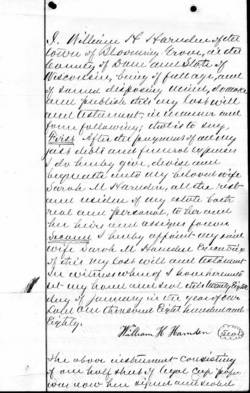 I, William H. Harnden of the
town of Blooming Grove, in the
County of Dane and State of
Wisconsin, being of full age, and
of sound disposing mind, do make
and publish this my last will
and testament, in manner and
form following; that is to say
First. After the payment of all my
just debts and funeral expenses
I do hereby give, devise and
bequeath unto my beloved wife
Sarah M Harnden, all the rest
and residue of my estate both
real and personal, to her and
her heirs and assigns forever
Second I hereby appoint my said
wife Sarah M. Harnden Executrix
of this my last will and testament
In witness whereof I have hereunto set
my hand and seal this twenty eighth
day of January in the year of our
Lord one thousand eight hundred and
Eighty.
William H. Harnden
Seal
The above instrument consisting
of one half sheet of legal cap paper
was now here signed and sealed